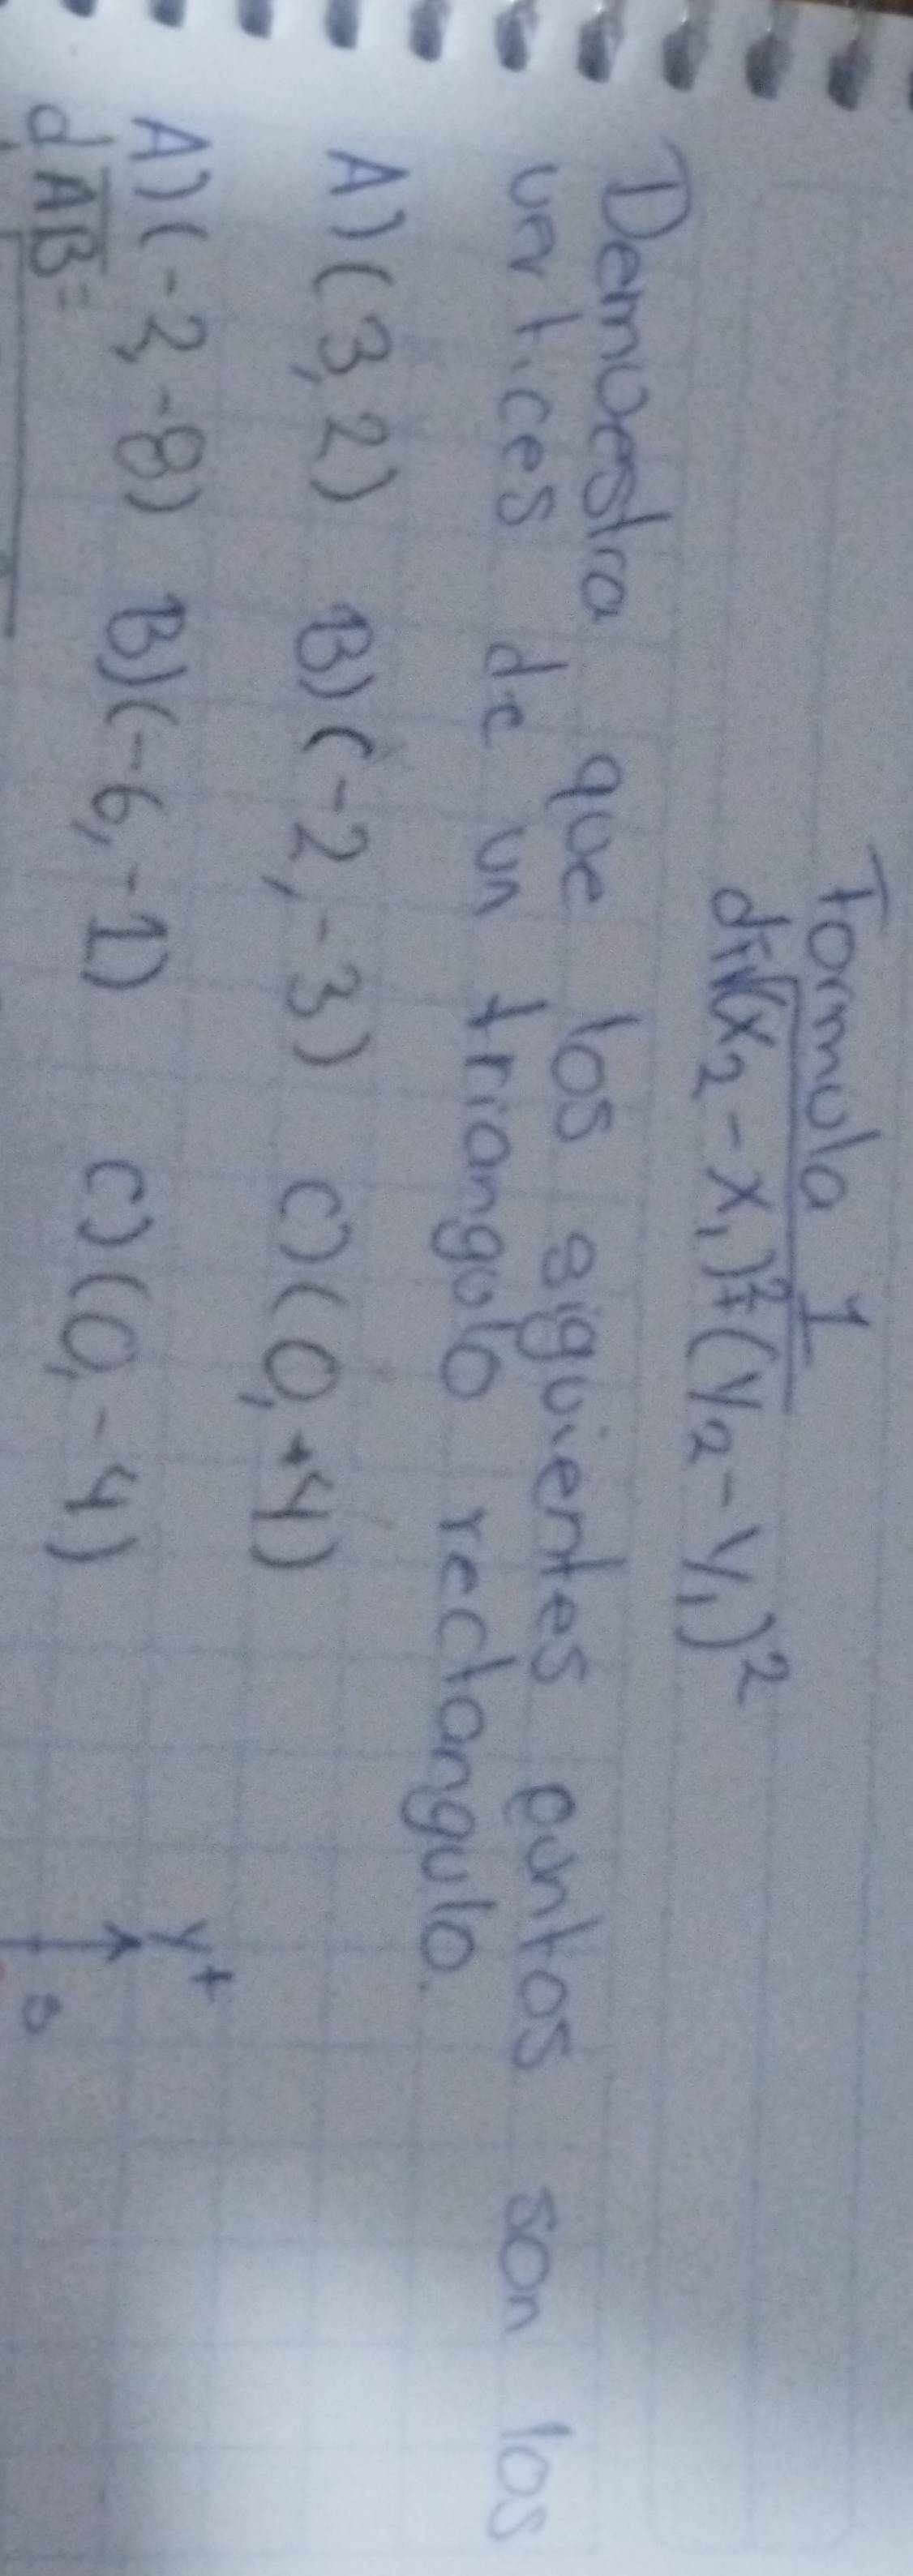 Formula 1
d=√(x₂-x₁)²+(y₂-y₁)²
Demuestra que los siguientes puntos son los
vertices de un triangulo rectangulo.
A) (3, 2) B) (-2, -3) C) (0, +4)
A) (-8) B) (-6, -1) C) (0, -4)
dAB=
y+